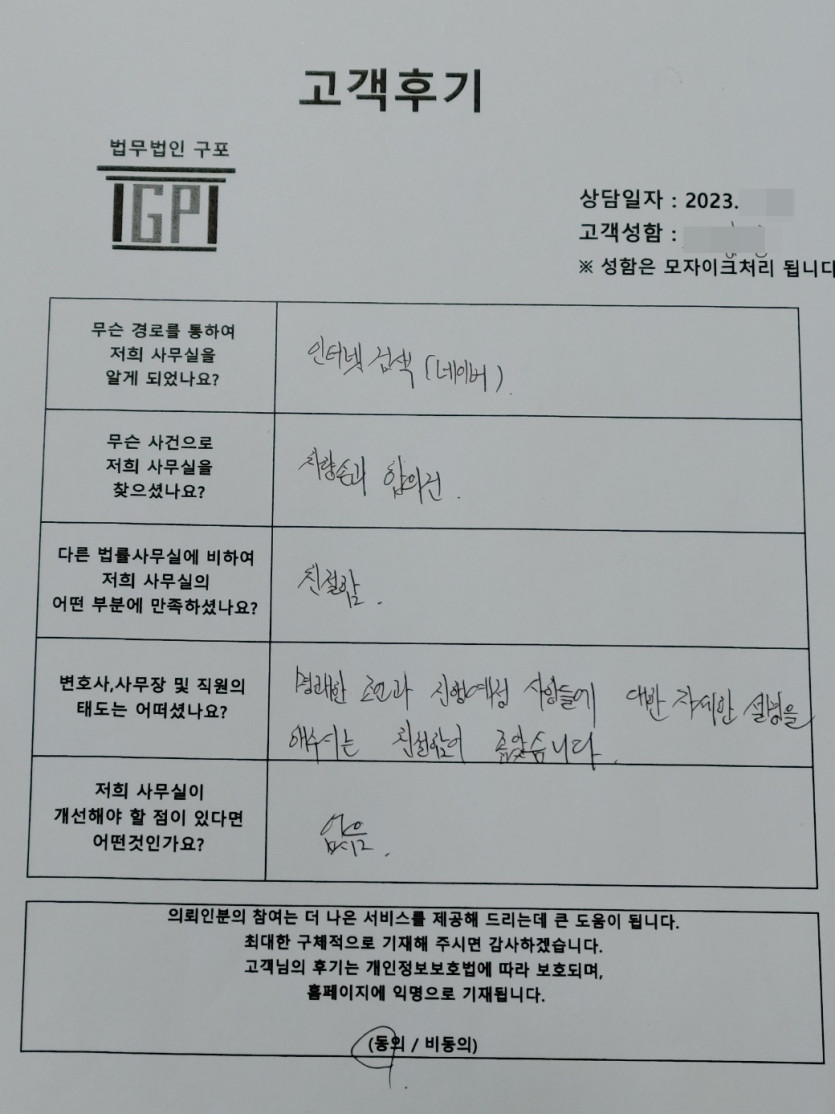 고객후기
법무법인 구포
IGPI
상담일자 : 2023.
고객성함 :
※ 성함은 모자이크처리 됩니다
무슨 경로를 통하여
저희 사무실을
알게 되었나요?
인터넷 검색 (네이버)
무슨 사건으로
저희 사무실을
찾으셨나요?
차량손괴 합의건.
다른 법률사무실에 비하여
저희 사무실의
어떤 부분에 만족하셨나요?
친절함.
변호사,사무장 및 직원의
태도는 어떠셨나요?
명쾌한 조언과 진행예정 사항들에 대한 자세한 설명을
해주시는 친절함이 좋았습니다.
저희 사무실이
개선해야 할 점이 있다면
어떤것인가요?
없음.
의뢰인분의 참여는 더 나은 서비스를 제공해 드리는데 큰 도움이 됩니다.
최대한 구체적으로 기재해 주시면 감사하겠습니다.
고객님의 후기는 개인정보보호법에 따라 보호되며,
홈페이지에 익명으로 기재됩니다.
(동의 / 비동의)